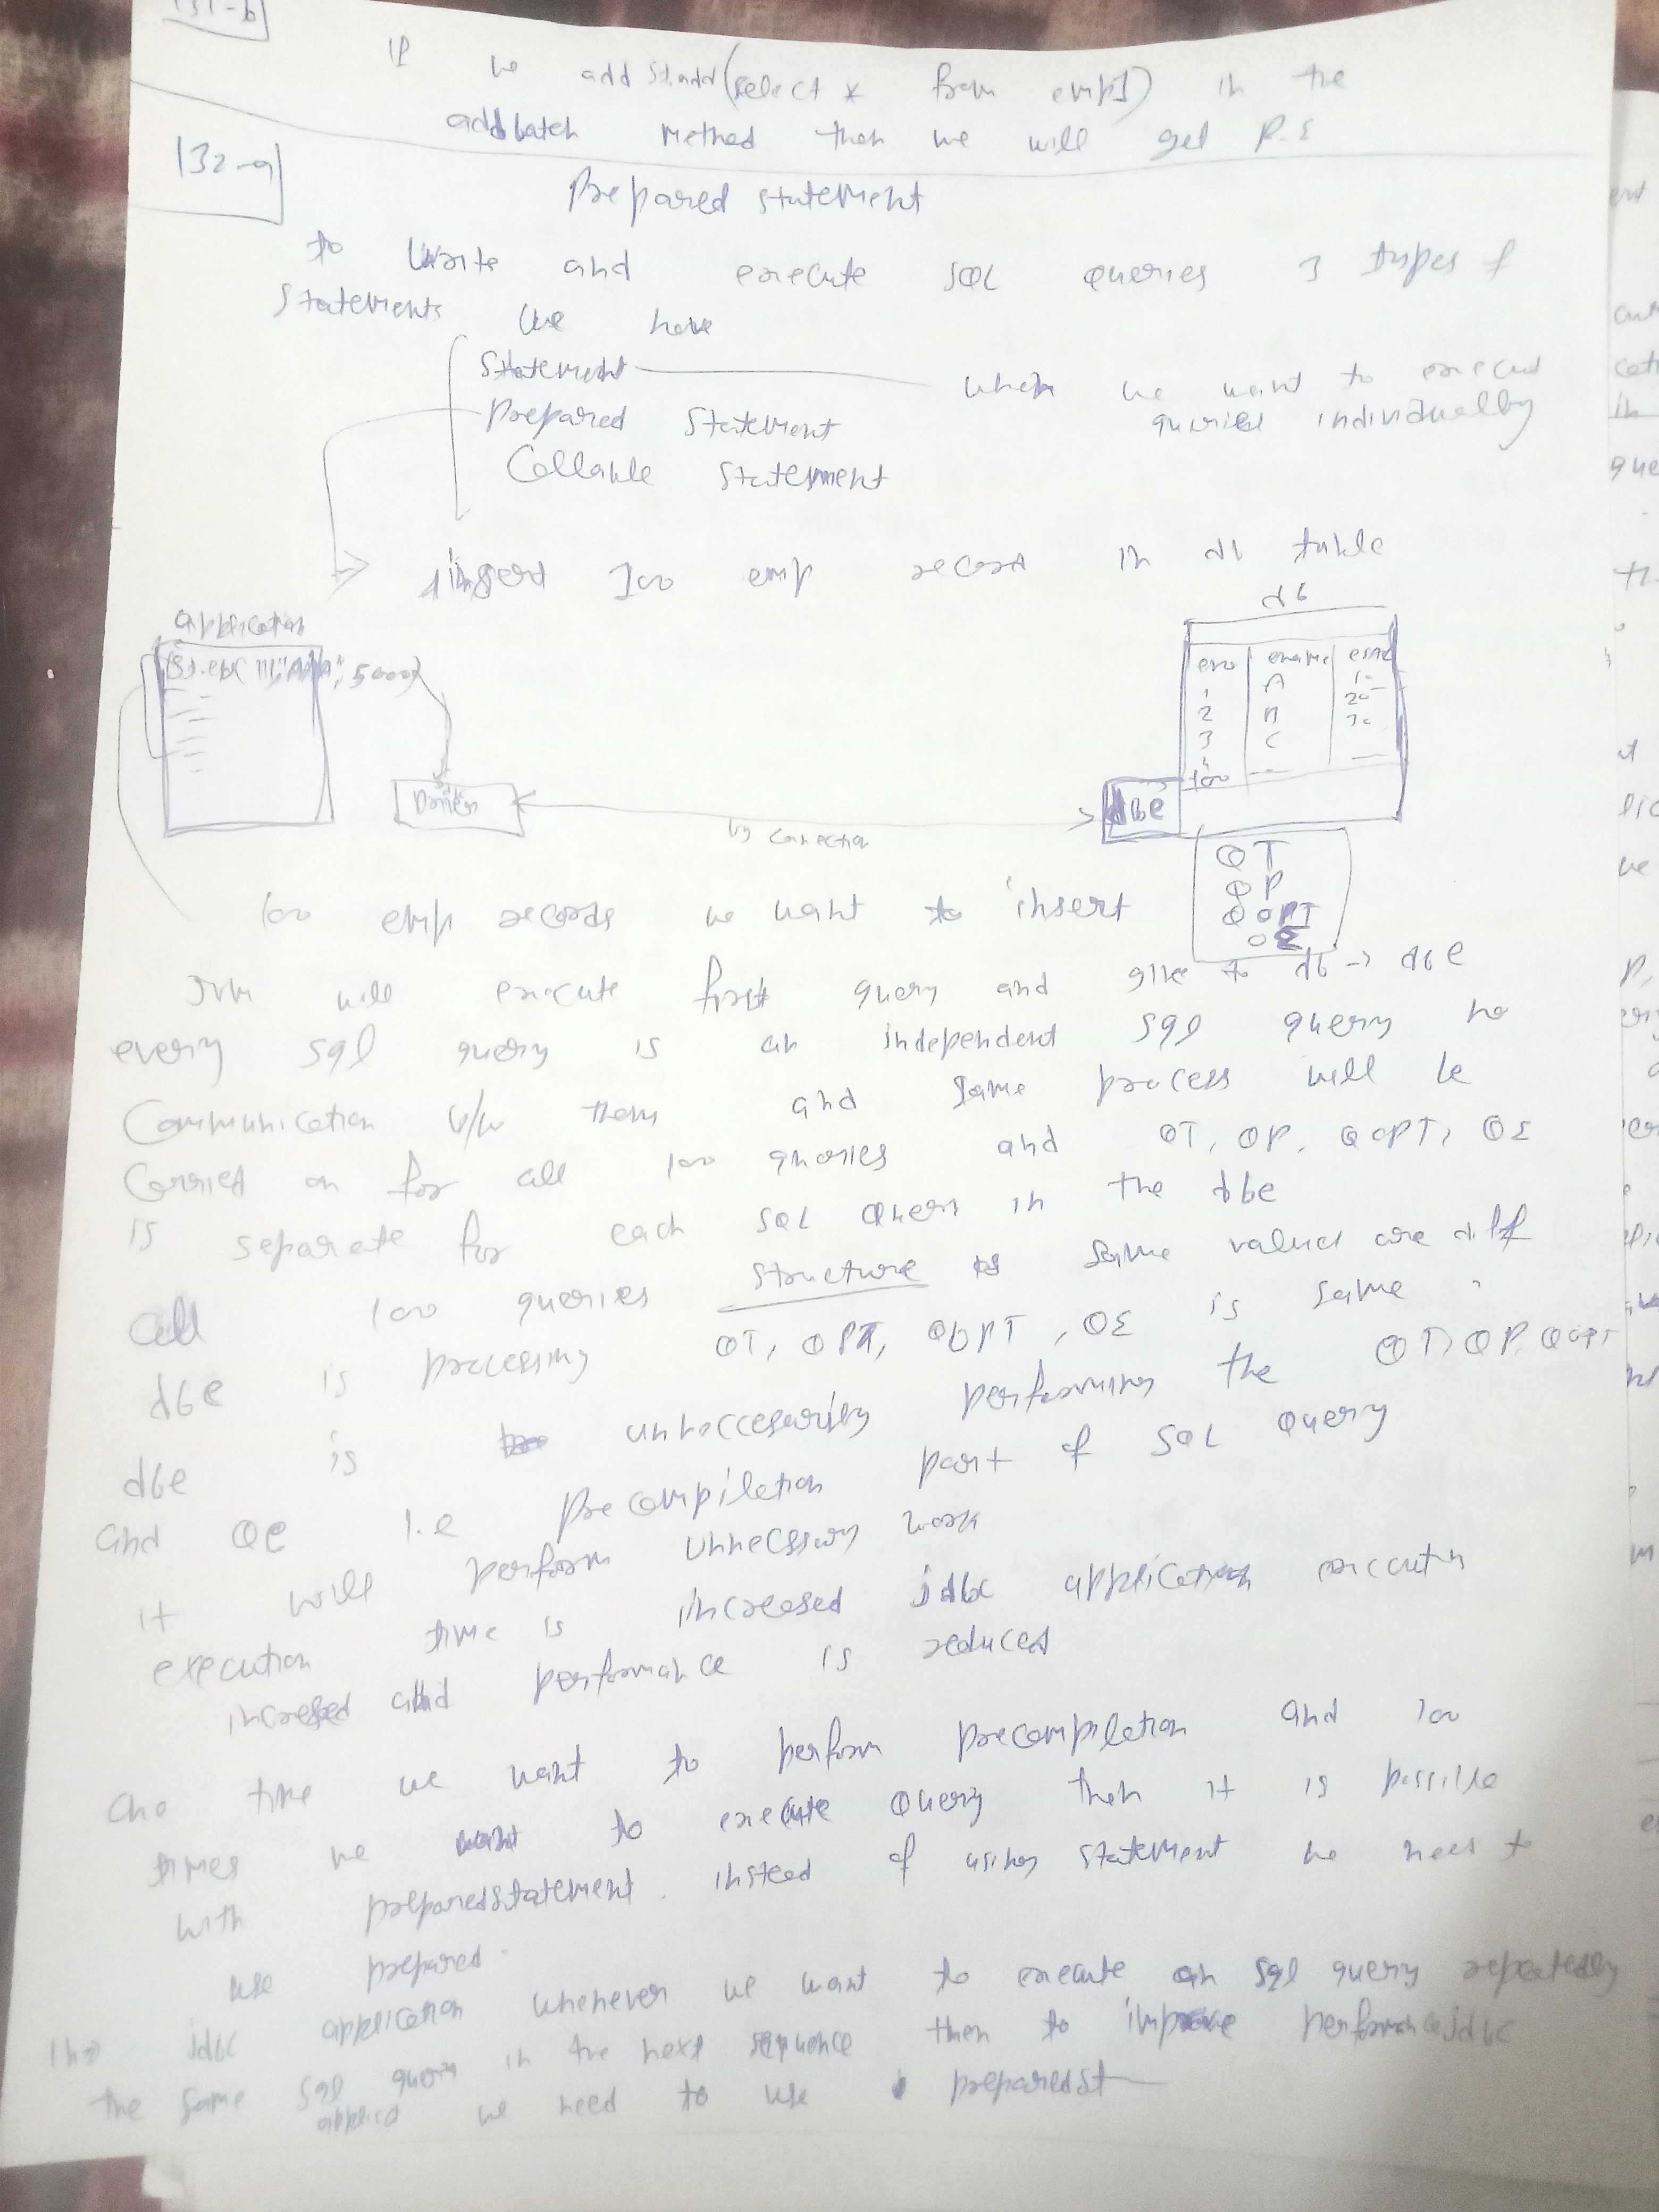 131-b
If we add st.add(select * from emp1) in the
addbatch method then we will get R.E
132-a
Prepared statement
to write and execute SQL queries 3 types of
statements we have
Statement when we want to execut
queries individually
Prepared Statement
Callable Statement
insert 100 emp record in db table
application
db
eno ename esal
1 A 10
2 B 20
3 C 30
100
Driver
by connection
dbe
QT
QP
QOPT
QE
100 emp records we want to insert
JVM will execute first query and give to db -> dbe
every sql query is an independent sql query no
Communication b/w them and same process will be
Carried on for all 100 queries and QT, QP, QOPT, QE
is separate for each SQL Query in the dbe
all 100 queries structure is same values are diff
dbe is processing QT, QPT, QOPT, QE is same
dbe is unneccesarily performing the QT, QP, QOPT
and QE i.e Precompilation part of SQL Query
it will perform unnecssary work
execution time is increased jdbc application execution
increased and performance is reduced
One time we want to perform precompilation and 100
times we want to execute query then it is possible
with preparedstatement. instead of using statement we need to
use prepared.
In jdbc application whenever we want to execute an sql query repeatedly
the same sql query in the next sequence then to improve performance jdbc
applica we need to use preparedst